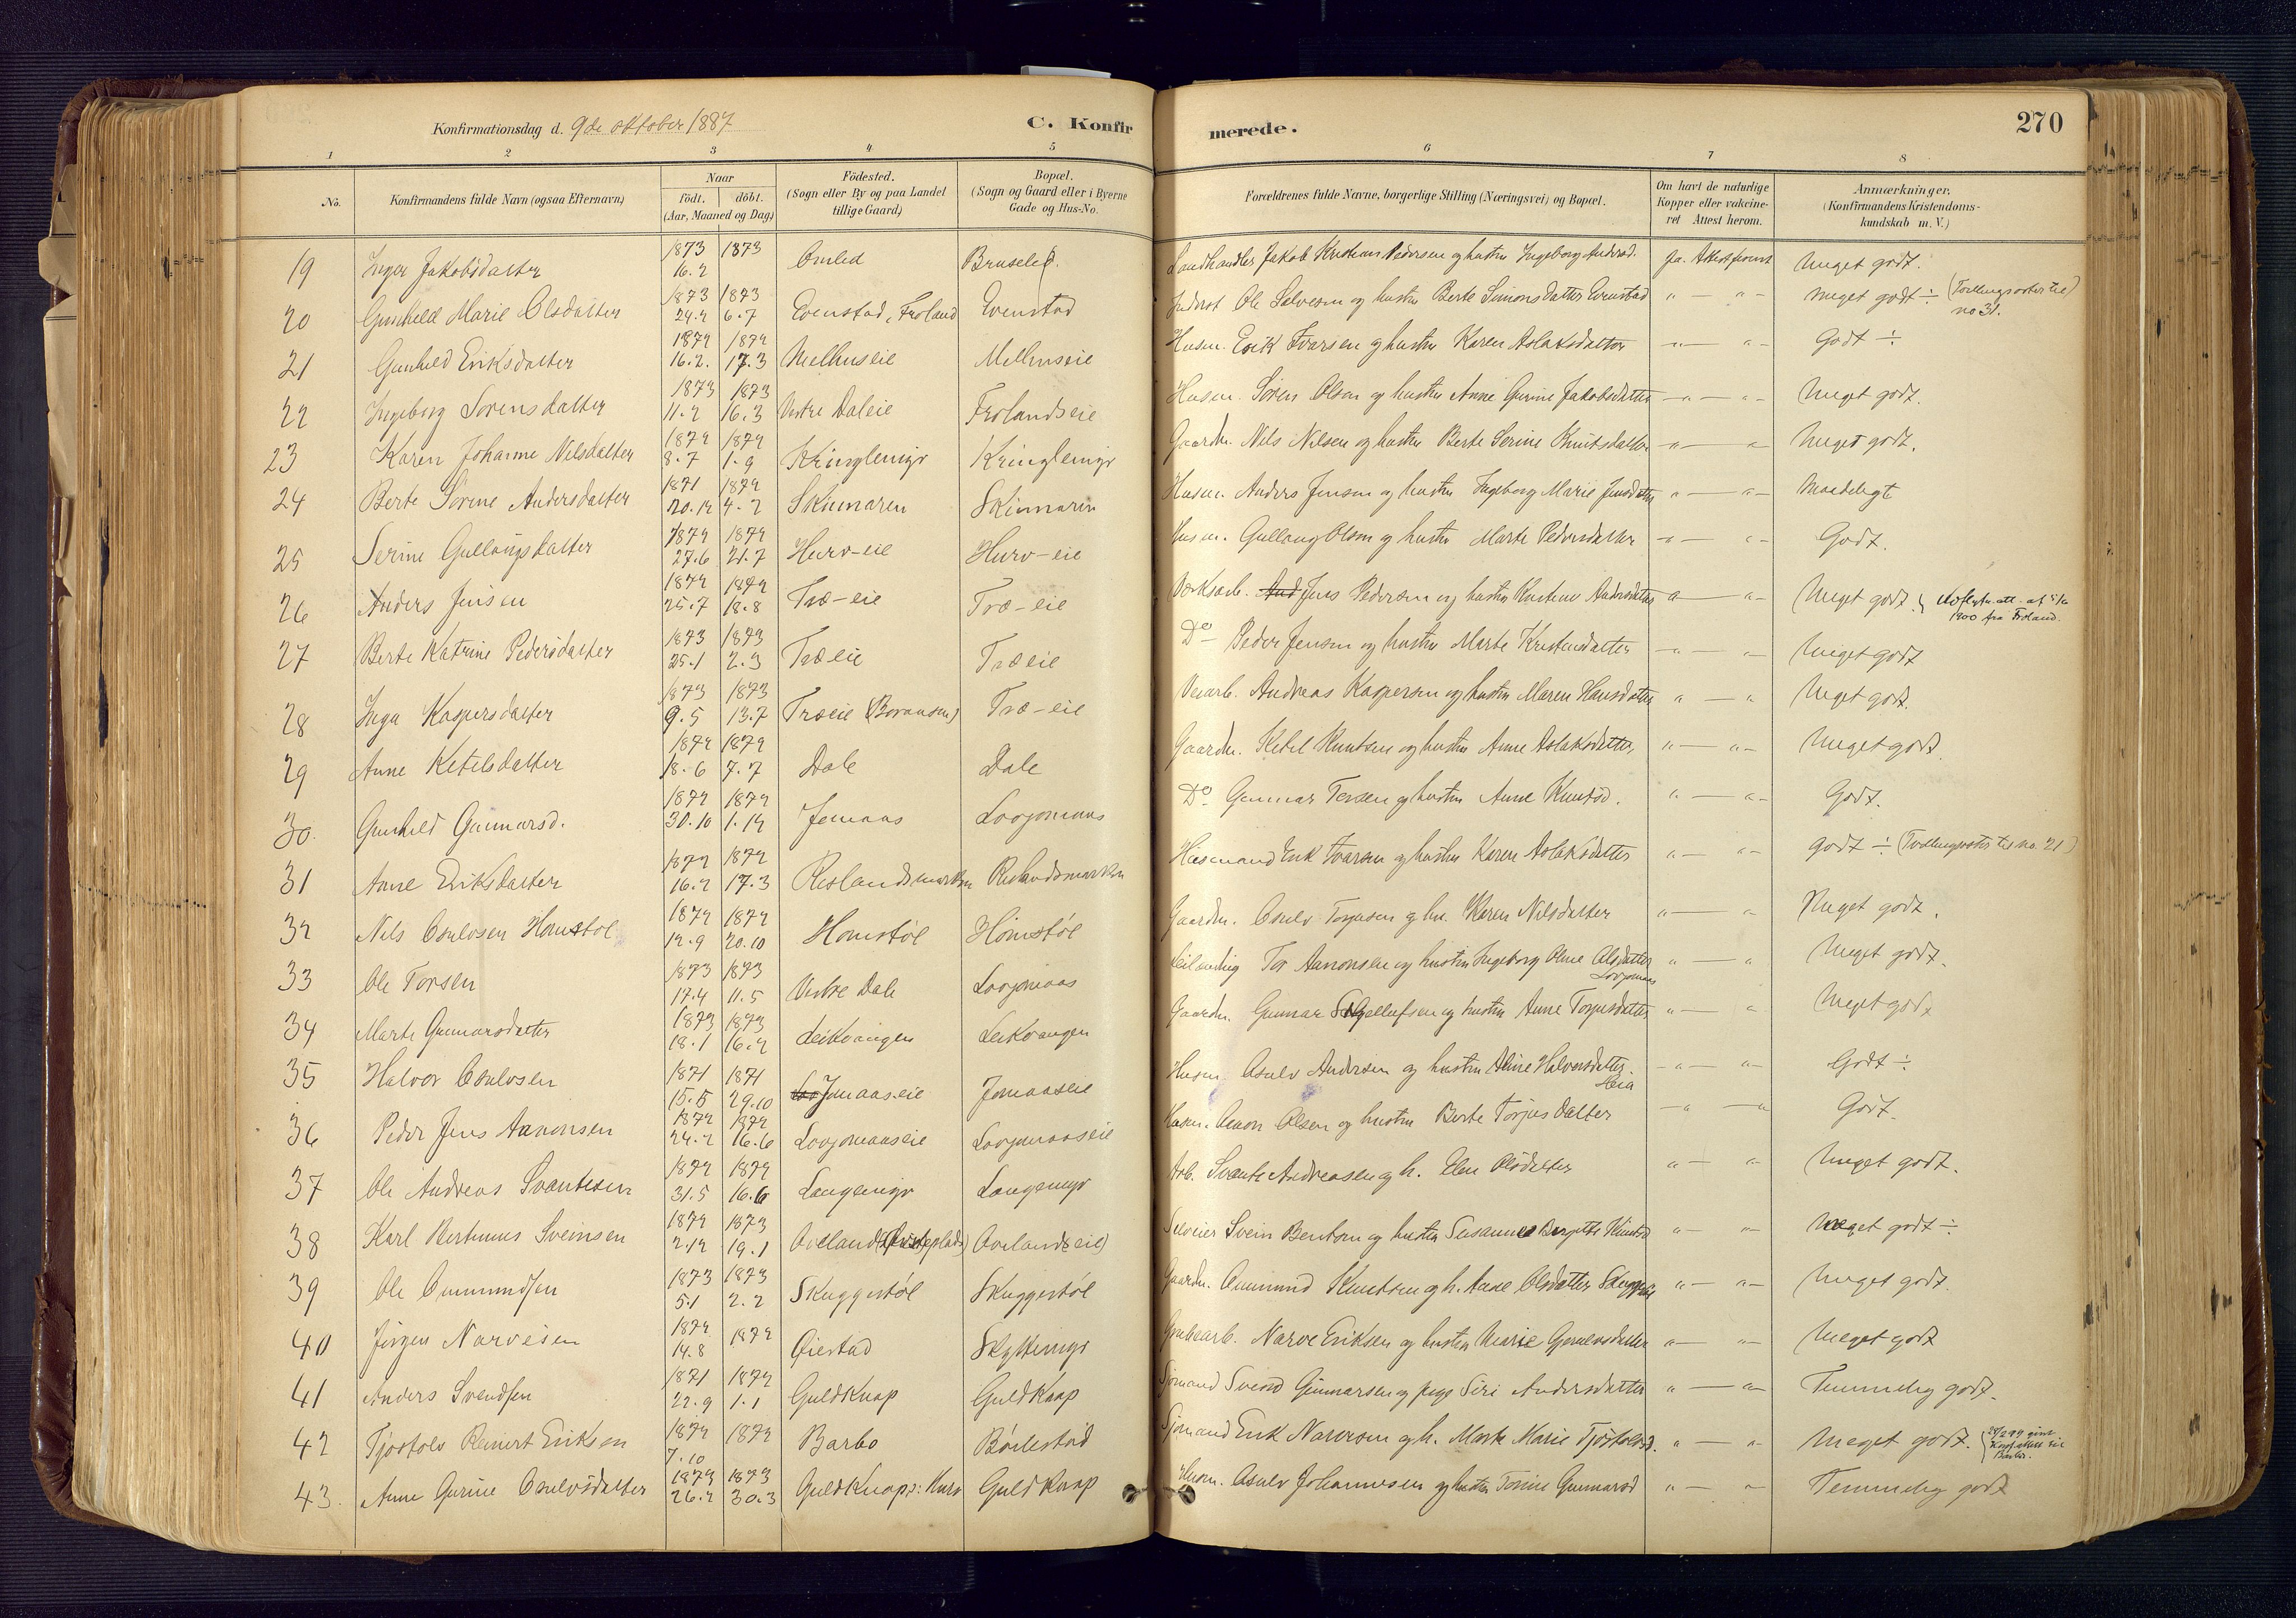 Konfirmationsdag d. 9de oktober 1887
C. Konfirmerede.
270
1 2 3 4 5 6 7 8
No.
Konfirmandens fulde Navn (ogsaa Efternavn)
Naar
födt. döbt.
(Aar, Maaned og Dag)
Födested.
(Sogn eller By og paa Landet
tillige Gaard)
Bopæl.
(Sogn og Gaard eller i Byerne
Gade og Hus-No.
Forældrenes fulde Navne, borgerlige Stilling (Næringsvei) og Bopæl.
Om havt de naturlige
Kopper eller vakcine-
ret Attest herom.
Anmærkninger.
(Konfirmandens Kristendoms-
kundskab m. V.)
19 Inger Jakobsdatter 1873 16.2 1873 Bruseled. Landhandler Jakob Kristians Pedersen og hustru Ingeborg Andersd. Ja. Attest Meget godt.
20 Gunhild Marie Olsdatter 1873 24.2 1873 6.7 Evenstad, Froland Evenstad Inderst Ole Salvesen og hustru Berte Simonsdatter Evenstad " — " — Meget godt ÷ no 31.
21 Gunhild Eriksdatter 1872 16.2. 1872 17.3 Melhuseie Melhuseie Husm. Erik Ivarsen og hustru Karen Aslaksdatter " — " — Godt ÷
22 Ingeborg Sörensdatter 1873 11.2 1873 16.3 Vestre Daleie Frolandseie Husm. Sören Olsen og hustru Anne Gurine Jakobsdatter " — " — Meget godt.
23 Karen Johanne Nilsdatter 1872 8.7 1872 1.9 Kringlemyr Kringlemyr Gaardm. Nils Nilsen og hustru Berte Serine Knutsdatter " — " Meget godt.
24 Berte Sörine Andersdatter 1871 20.12 1872 4.2 Skinnaren Skinnaren Husm. Anders Jensen og hustru Ingeborg Marie Jensdatter " — " — Maadeligt
25 Serine Gullaugsdatter 1872 27.6 1872 21.7 Hurv-eie Hurv-eie Husm. Gullaug Olsen og hustru Marte Pedersdatter " — " — Godt.
26 Anders Jensen 1872 25.7 1872 18.8 Træ-eie Træ-eie Værksarb. Jens Pedersen og hustru Andersdatter " — " — Meget godt. 1900 fra Froland.
27 Berte Katrine Pedersdatter 1873 25.1 1873 2.3 Træeie Træeie Do Peder Jensen og hustru Marte Kristensdatter " — " — Meget godt
28 Inga Kaspersdatter 1873 9.5 1873 13.7 Træeie Træ-eie Veiarb. Andreas Kaspersen og hustru Maren Hansdatter " — " Meget godt.
29 Anne Ketilsdatter 1872 18.6 1872 7.7 Dale Dale Gaardm. Ketil Knutsen og hustru Anne Aslaksdatter, " — " — Meget godt
30. Gunhild Gunnarsd. 1872 30.10 1872 1.12 Jomaas Lovjomaas Do Gunnar Tersen og hustru Anne Knutsd. " — " — Godt.
31 Anne Eriksdatter 1872 16.2 1872 17.3 Rislandsmarken Rislandsmarken Husmand Erik Ivarsen og hustru Karen Aslaksdatter " — " — godt ÷ (Tvillingsøster til no. 21)
32 Nils Osulvsen Homstøl 1872 12.9 1872 20.10 Homstøl Homstøl Gaardm. Osulv Torjusen og hu. Karen Nilsdatter " — " Meget godt.
33 Ole Torsen 1873 17.4 1873 11.5 Vestre Dale Lovjomaas Leilænding Tor Aanonsen og hustru Ingeborg Olsdatter " — " Meget godt.
Lovjomaas
34 Marte Gunnarsdatter 1873 18.1 1873 16.2 Leikvangen Leikvangen Gaardm. Gunnar og hustru Anne Torjusdatter " — " Meget godt
35 Halvor Osulvsen 1871 15.5 1871 29.10 Jomaaseie Jomaaseie Husm. Osulv Andersen og hustru Halvorsdatter. " — " — Godt ÷
36 Peder Jens Aanonsen 1872 24.2 1872 16.6 Lovjomaaseie Lovjomaaseie Husm. Aanon Olsen og hustru Berte Torjusdatter — " — " Godt.
37 Ole Andreas Svantesen 1872 31.5 1872 16.6 Langemyr Langemyr Arb. Svante Andreasen og h. Olsdatter " — " Meget godt.
38 Karl Bertinius Sveinsen 1872 2.12 1873 19.1 Ovelands Ovelandseie Selveier Svein Bentsen og hustru Susanne Birgitte Knutsd " — " Meget godt ÷
39 Ole Ommundsen 1873 5.1 1873 2.2 Skuggestøl Skuggestøl Gaardm. Ommund Knutsen og h. Anne Olsdatter " — " — Meget godt.
40 Jörgen Narvesen 1872 14.8 1872 Øiestad Skyttemyr Grubearb. Narve Eriksen og hustru Marie " — " Meget godt
41 Anders Svendsen 1871 22.9 1872 1.1 Guldknap Guldknap Sjømand Svend Gunnarsen og pige Siri Andersdatter " — " Temmelig godt.
42 Tjöstolv Reinert Eriksen 1872 7.10 1872 Barbo Bölestad Sjømand Erik Narvesen og h. Marte Marie Tjöstolvsd. " — " Meget godt.
43. Anne Gurine Osulvsdatter 1873 26.2 1873 30.3 Guldknap Guldknap Husm. Osulv Johannesen og hustru Gunnarsd " — " Temmelig godt